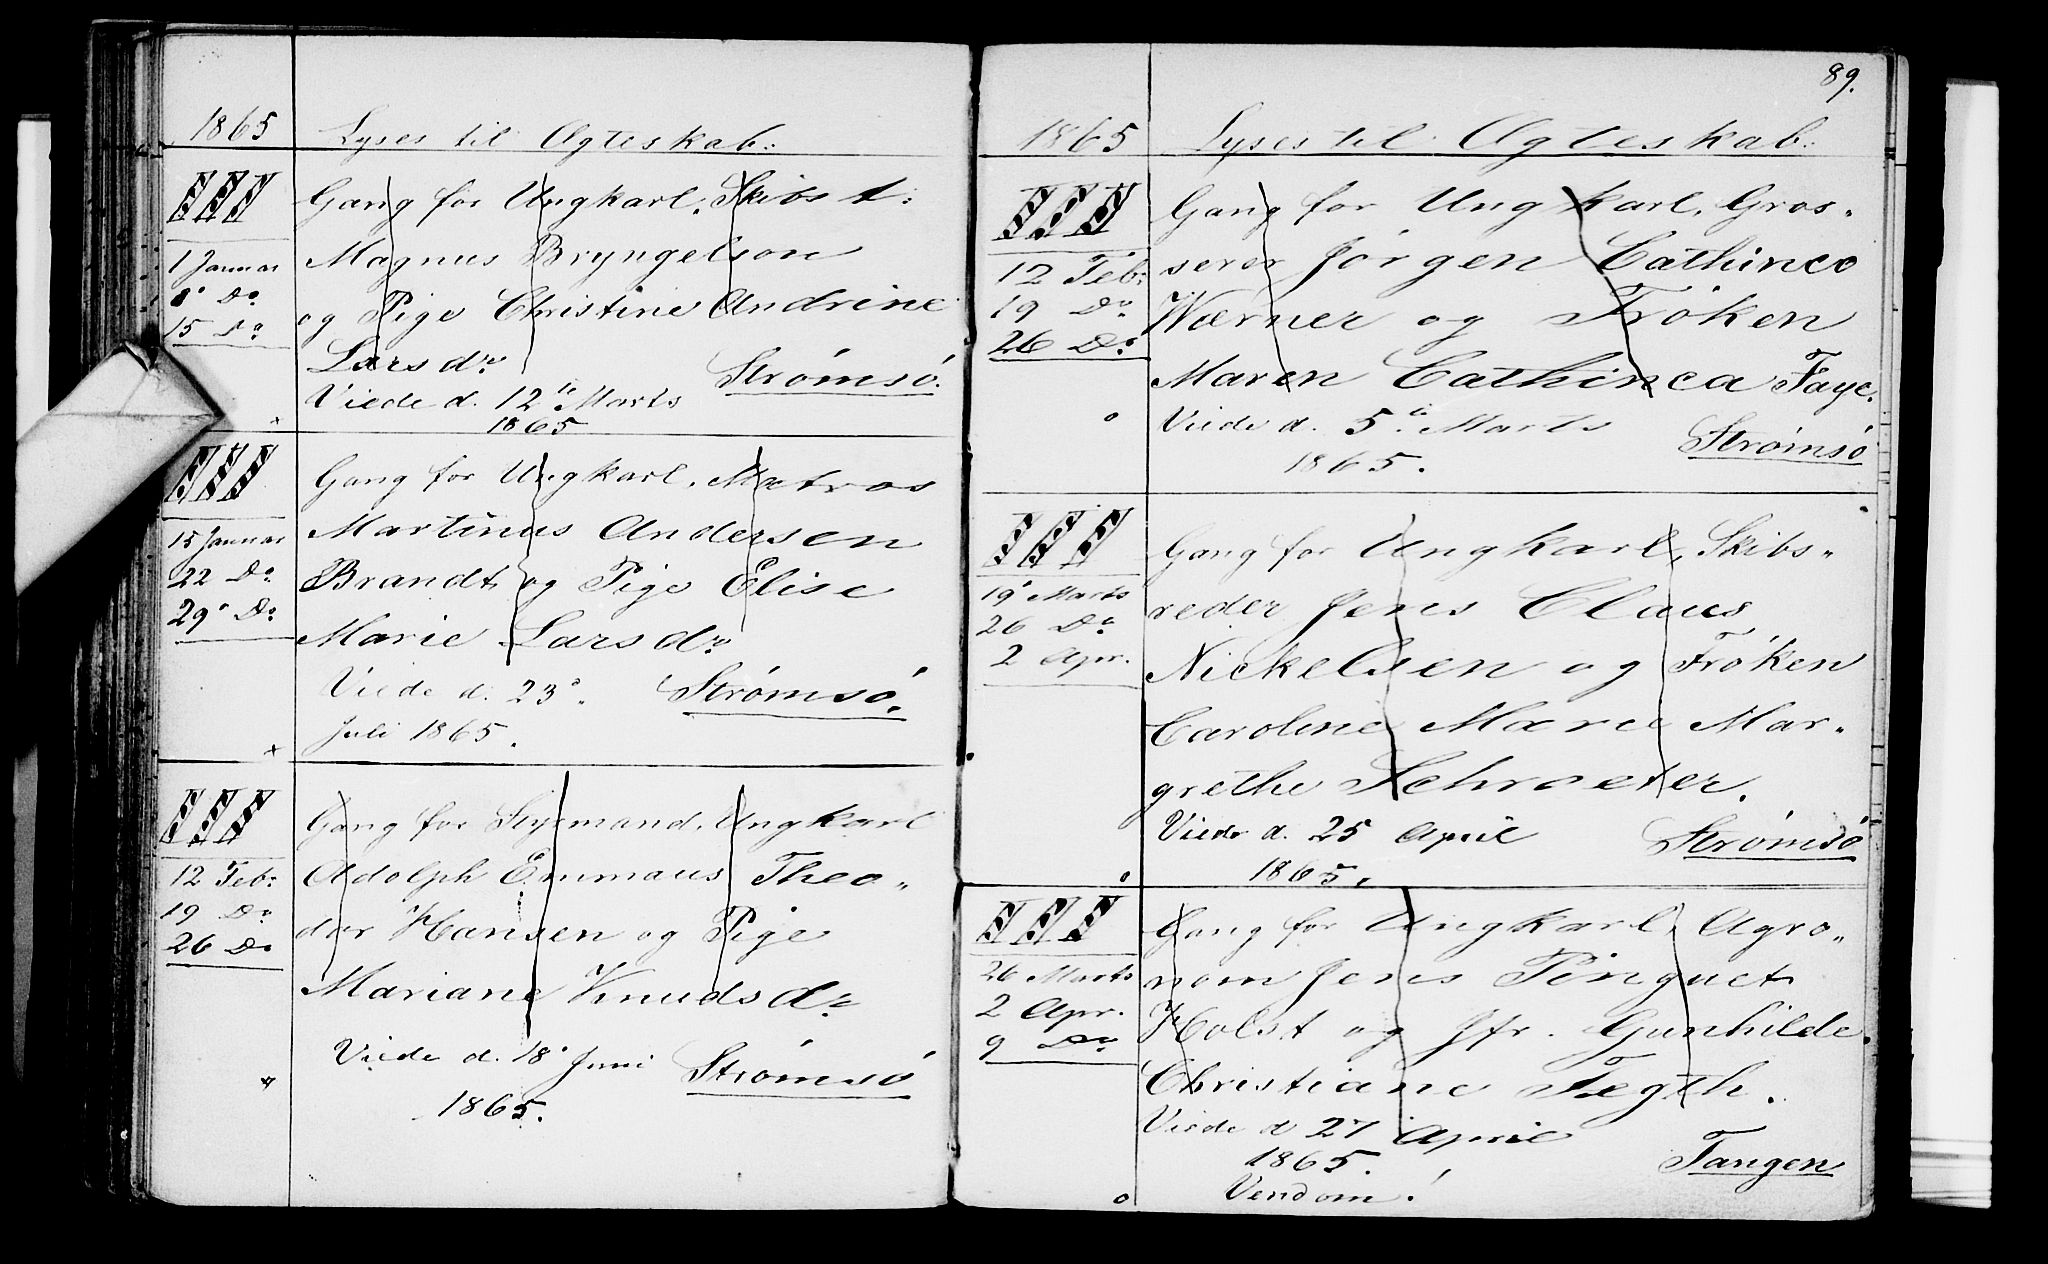 1865 Lyses til Ægteskab:
III Gang for Ungkarl, Skibst:
1 Januar Magnus Bryngelson
8 Do og Pige Christine Andrine
15 Do Larsdr
Viede d. 12te Marts Strømsø.
1865
III Gang for Ungkarl, Matros
15 Januar Martinus Andersen
22 Do Brandt og Pige Elise
29 Do Marie Larsdr
Viede d. 23 Strømsø.
Juli 1865.
III Gang for Styrmand, Ungkarl
12 Feb: Adolph Emmaus Theo-
19 Do dor Hansen og Pige
26 Do Mariane Knudsdr
Viede d. 18 Juni Strømsø
1865.
89.
1865 Lyses til Ægteskab:
III Gang for Ungkarl, Gros-
12 Feb: serer Jørgen Cathinco
19 Do Wærner og Frøken
26 Do Maren Cathinca Faye.
Viede d. 5te Marts Strømsø
1865.
III Gang for Ungkarl, Skibs-
19 Marts reder Jens Claus
26 Do Nickelsen og Frøken
2 Apr. Caroline Marie Mar-
grethe Schroeter.
Viede d. 25 April Strømsø
1865.
III Gang for Ungkarl, Agro-
26 Marts nom Jens Pinquet
2 Apr. Holst og Jfr. Gunhilde
9 Do Christiane Tegth.
Viede d 27 April
1865. Tangen
Vendom!